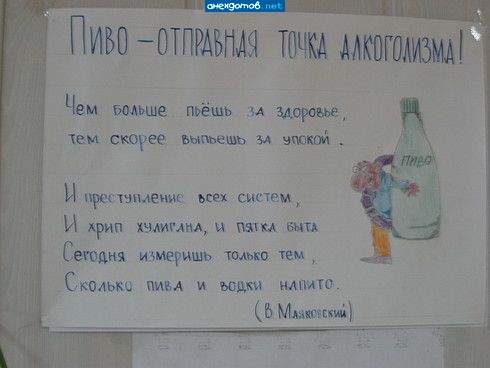 анекдотов.net
Пиво – отправная точка алкоголизма!
Чем больше пьёшь за здоровье,
тем скорее выпьешь за упокой.
ПИВО
И преступление всех систем,
И хрип хулигана, и пятка быта
Сегодня измеришь только тем,
Сколько пива и водки напито.
(В. Маяковский)